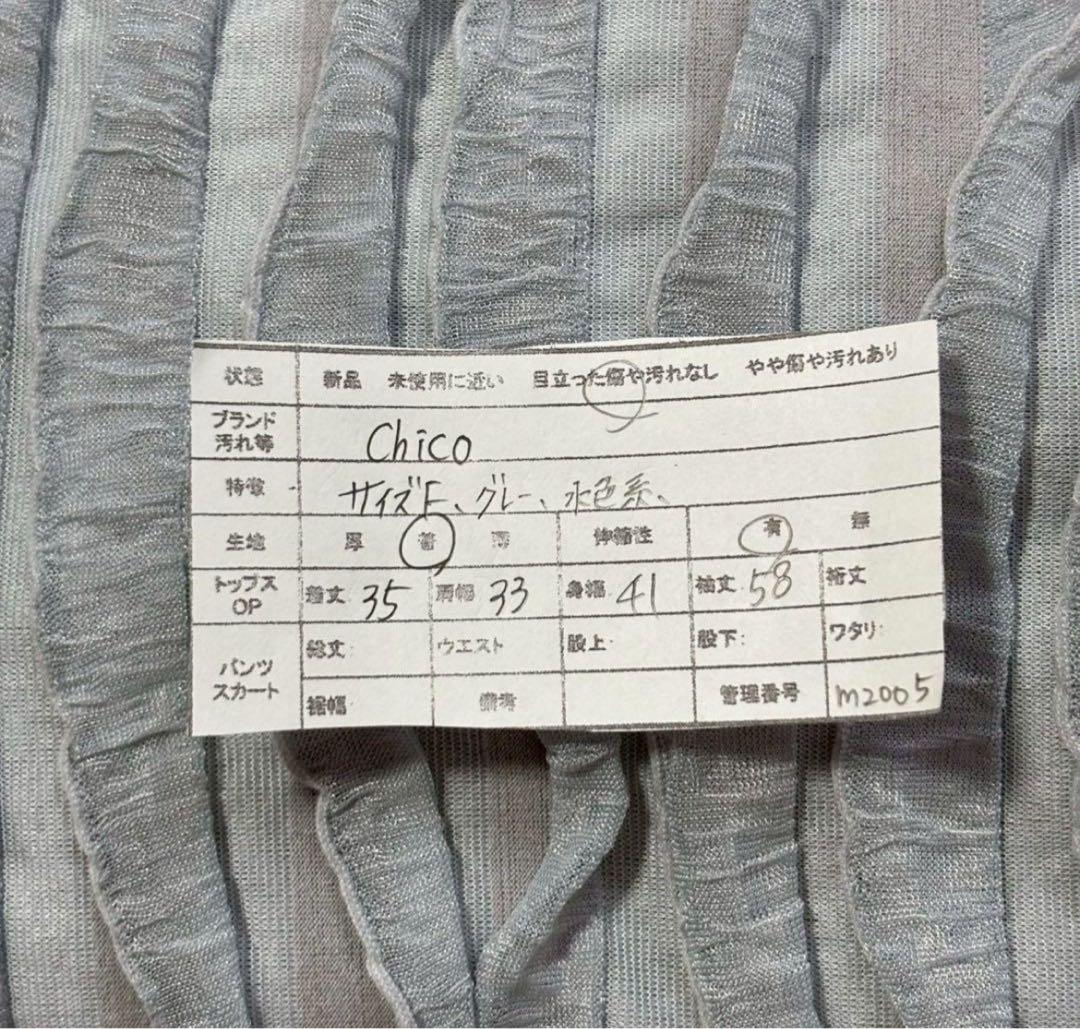 状態 新品 未使用に近い 目立った傷や汚れなし やや傷や汚れあり
ブランド
汚れ等 Chico
特徴 サイズF、グレー、水色系、
生地 厚 普 薄 伸縮性 有 無
トップス
OP 着丈 35 肩幅 33 身幅 41 袖丈 58 裄丈
パンツ
スカート 総丈: ウエスト 股上: 股下: ワタリ:
裾幅 備考 管理番号 m2005